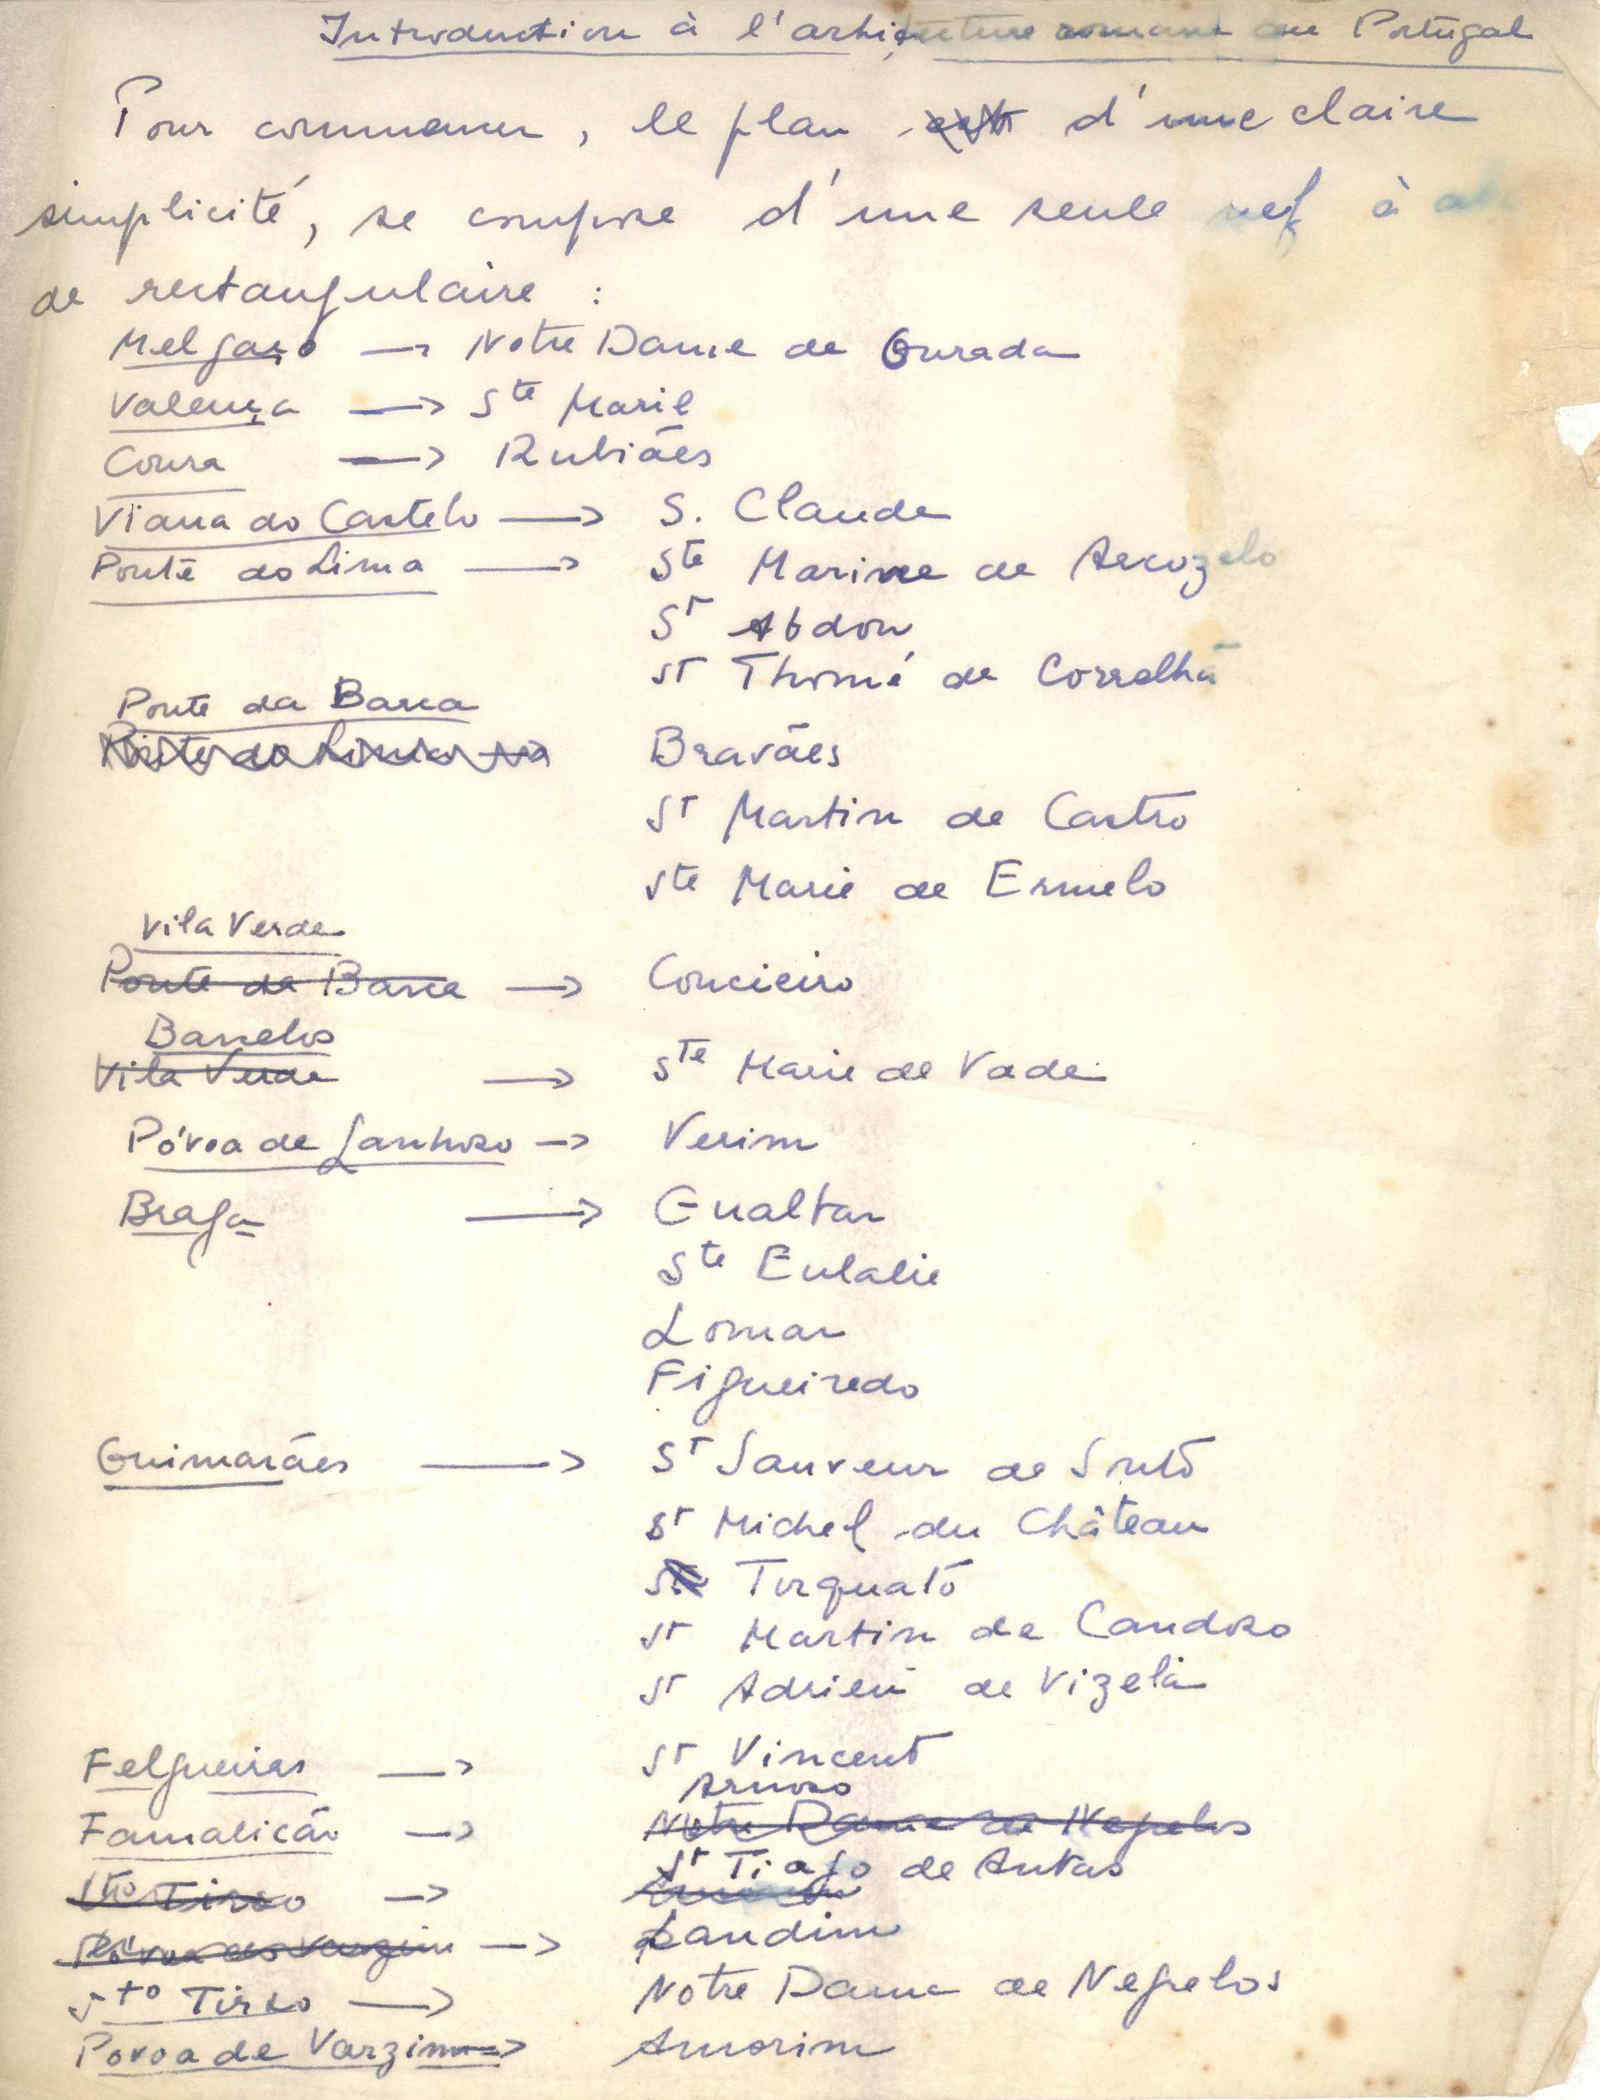 Introduction à l'architecture romane au Portugal
Pour commencer, le plan d'une claire
simplicité, se compose d'une seule nef à
de rectangulaire :
Melgaço → Notre Dame de Ourada
Valença → Ste Marie
Coura → Rubiães
Viana do Castelo → S. Claude
Ponte do Lima → Ste Marine de Arcozelo
St Abdon
St Thomé de Correlhã
Ponte da Barca
Ponte do Lima → Bravães
St Martin de Castro
Ste Marie de Ermelo
Vila Verde
Ponte da Barca → Concieiro
Barcelos
Vila Verde → Ste Marie de Vade
Póvoa de Lanhoso → Verim
Braga → Gualtar
Ste Eulalie
Lomar
Figueiredo
Guimarães → St Sauveur de Souto
St Michel du Château
Torquato
St Martin de Candoso
St Adrien de Vizela
Felgueiras → St Vincent
Arnoso
Famalicão → Notre Dame de Negrelos
St Tiago de Antas
Sto Tirso →
Póvoa de Varzim → Landim
Sto Tirso → Notre Dame de Negrelos
Povoa de Varzim → Amorim